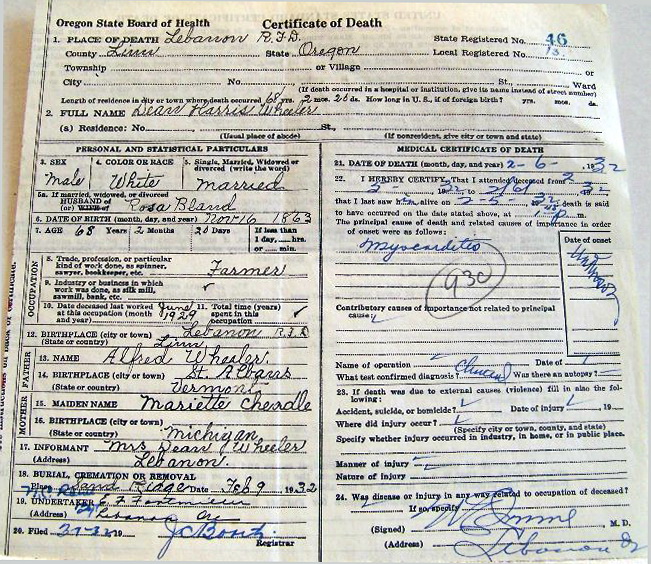 Oregon State Board of Health
Certificate of Death
1. PLACE OF DEATH Lebanon R.F.D. State Registered No. 46
County Linn State Oregon Local Registered No. 13
Township or Village or
City No. St., Ward
(If death occurred in a hospital or institution, give its name instead of street number)
Length of residence in city or town where death occurred 68 yrs. 2 mos. 20 ds. How long in U. S., if of foreign birth? yrs. mos. ds.
2. FULL NAME Dean Harris Wheeler
(a) Residence: No. St.,
(Usual place of abode) (If nonresident, give city or town and state)
PERSONAL AND STATISTICAL PARTICULARS
3. SEX Male
4. COLOR OR RACE White
5. Single, Married, Widowed or Divorced (write the word) Married
5a. If married, widowed, or divorced
HUSBAND of
(or) WIFE of Rosa Bland
6. DATE OF BIRTH (month, day, and year) Nov-16 1863
7. AGE 68 Years 2 Months 20 Days If less than 1 day, hrs. or min.
OCCUPATION
8. Trade, profession, or particular kind of work done, as spinner, sawyer, bookkeeper, etc. Farmer
9. Industry or business in which work was done, as silk mill, sawmill, bank, etc.
10. Date deceased last worked at this occupation (month June 1929
11. Total time (years) spent in this occupation
12. BIRTHPLACE (city or town) Lebanon R.F.D.
(State or country) Linn
FATHER
13. NAME Alfred Wheeler
14. BIRTHPLACE (city or town) St. Albans
(State or country) Vermont
MOTHER
15. MAIDEN NAME Mariette
16. BIRTHPLACE (city or town)
(State or country) Michigan
17. INFORMANT Mrs Dean Wheeler
(Address) Lebanon.
18. BURIAL, CREMATION OR REMOVAL
Place Sand Ridge Date Feb 9 1932
19. UNDERTAKER
(Address) Lebanon Ore
20. Filed 19
Registrar
MEDICAL CERTIFICATE OF DEATH
21. DATE OF DEATH (month, day, and year) 2-6- 1932
22. I HEREBY CERTIFY, That I attended deceased from
that I last saw him alive on 2-5- 32 death is said
to have occurred on the date stated above, at m.
The principal cause of death and related causes of importance in order of onset were as follows:
Date of onset
Myocarditis
Unknown
930
Contributory causes of importance not related to principal cause:
Name of operation Date of
What test confirmed diagnosis? Clinical Was there an autopsy?
23. If death was due to external causes (violence) fill in also the following:
Accident, suicide, or homicide? Date of injury 19
Where did injury occur?
(Specify city or town, county, and state)
Specify whether injury occurred in industry, in home, or in public place.
Manner of injury
Nature of injury
24. Was disease or injury in any way related to occupation of deceased?
If so, specify
(Signed) M. D.
(Address) Lebanon Or